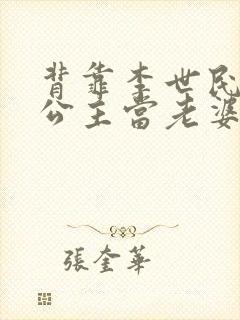 背靠李世民
公主当老婆
張奎華